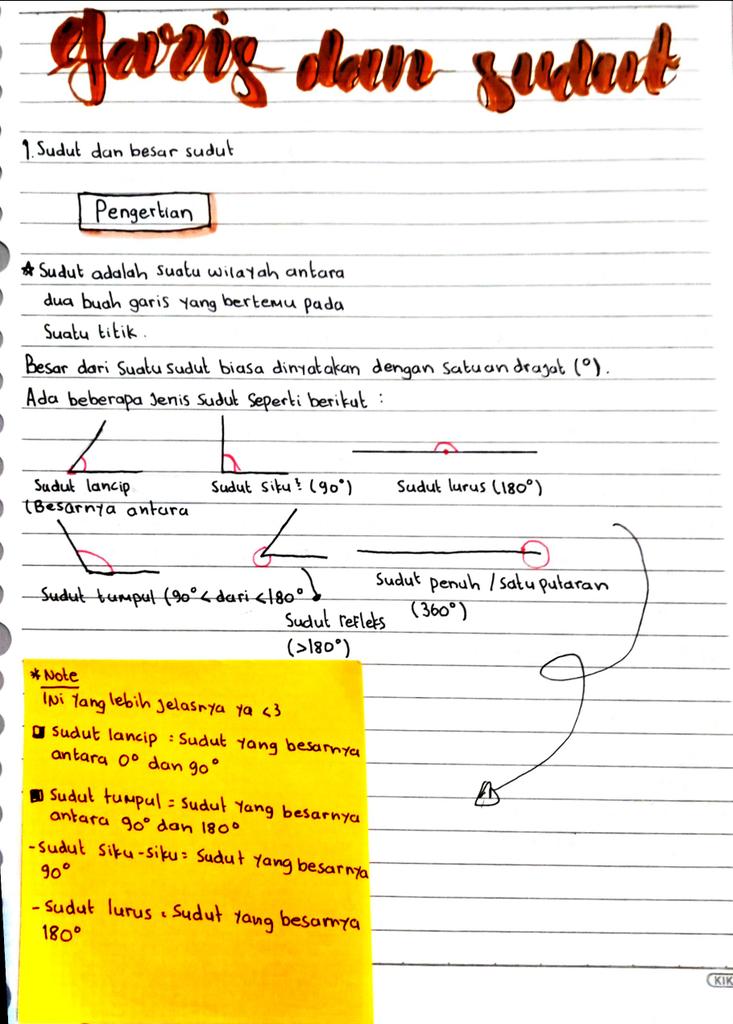 Garis dan sudut
1. Sudut dan besar sudut
Pengertian
☆ Sudut adalah suatu wilayah antara
dua buah garis yang bertemu pada
suatu titik.
Besar dari suatu sudut biasa dinyatakan dengan satuan drajat (°).
Ada beberapa jenis sudut seperti berikut :
Sudut lancip
(Besarnya antara
Sudut siku² (90°)
Sudut lurus (180°)
Sudut tumpul (90° < dari <180°
Sudut refleks
(>180°)
Sudut penuh / satu putaran
(360°)
* Note
Ini yang lebih jelasnya ya <3
Sudut lancip : Sudut yang besarnya
antara 0° dan 90°
Sudut tumpul = Sudut yang besarnya
antara 90° dan 180°
- Sudut siku-siku = Sudut yang besarnya
90°
- Sudut lurus : Sudut yang besarnya
180°
KIK